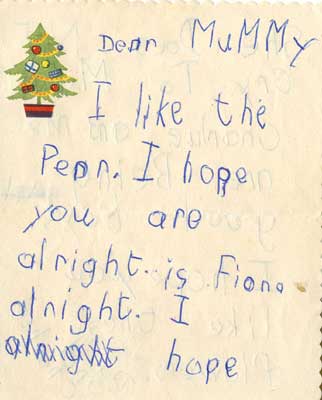 Dear MuMMy
I like the
Pen. I hope
you are
alright. is Fiona
alright. I
alright hope